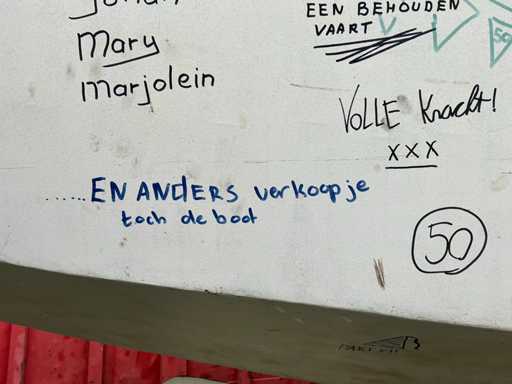 EEN BEHOUDEN
VAART
50
Mary
Marjolein
VOLLE Kracht!
xxx
......EN ANDERS verkoop je
toch de boot
50